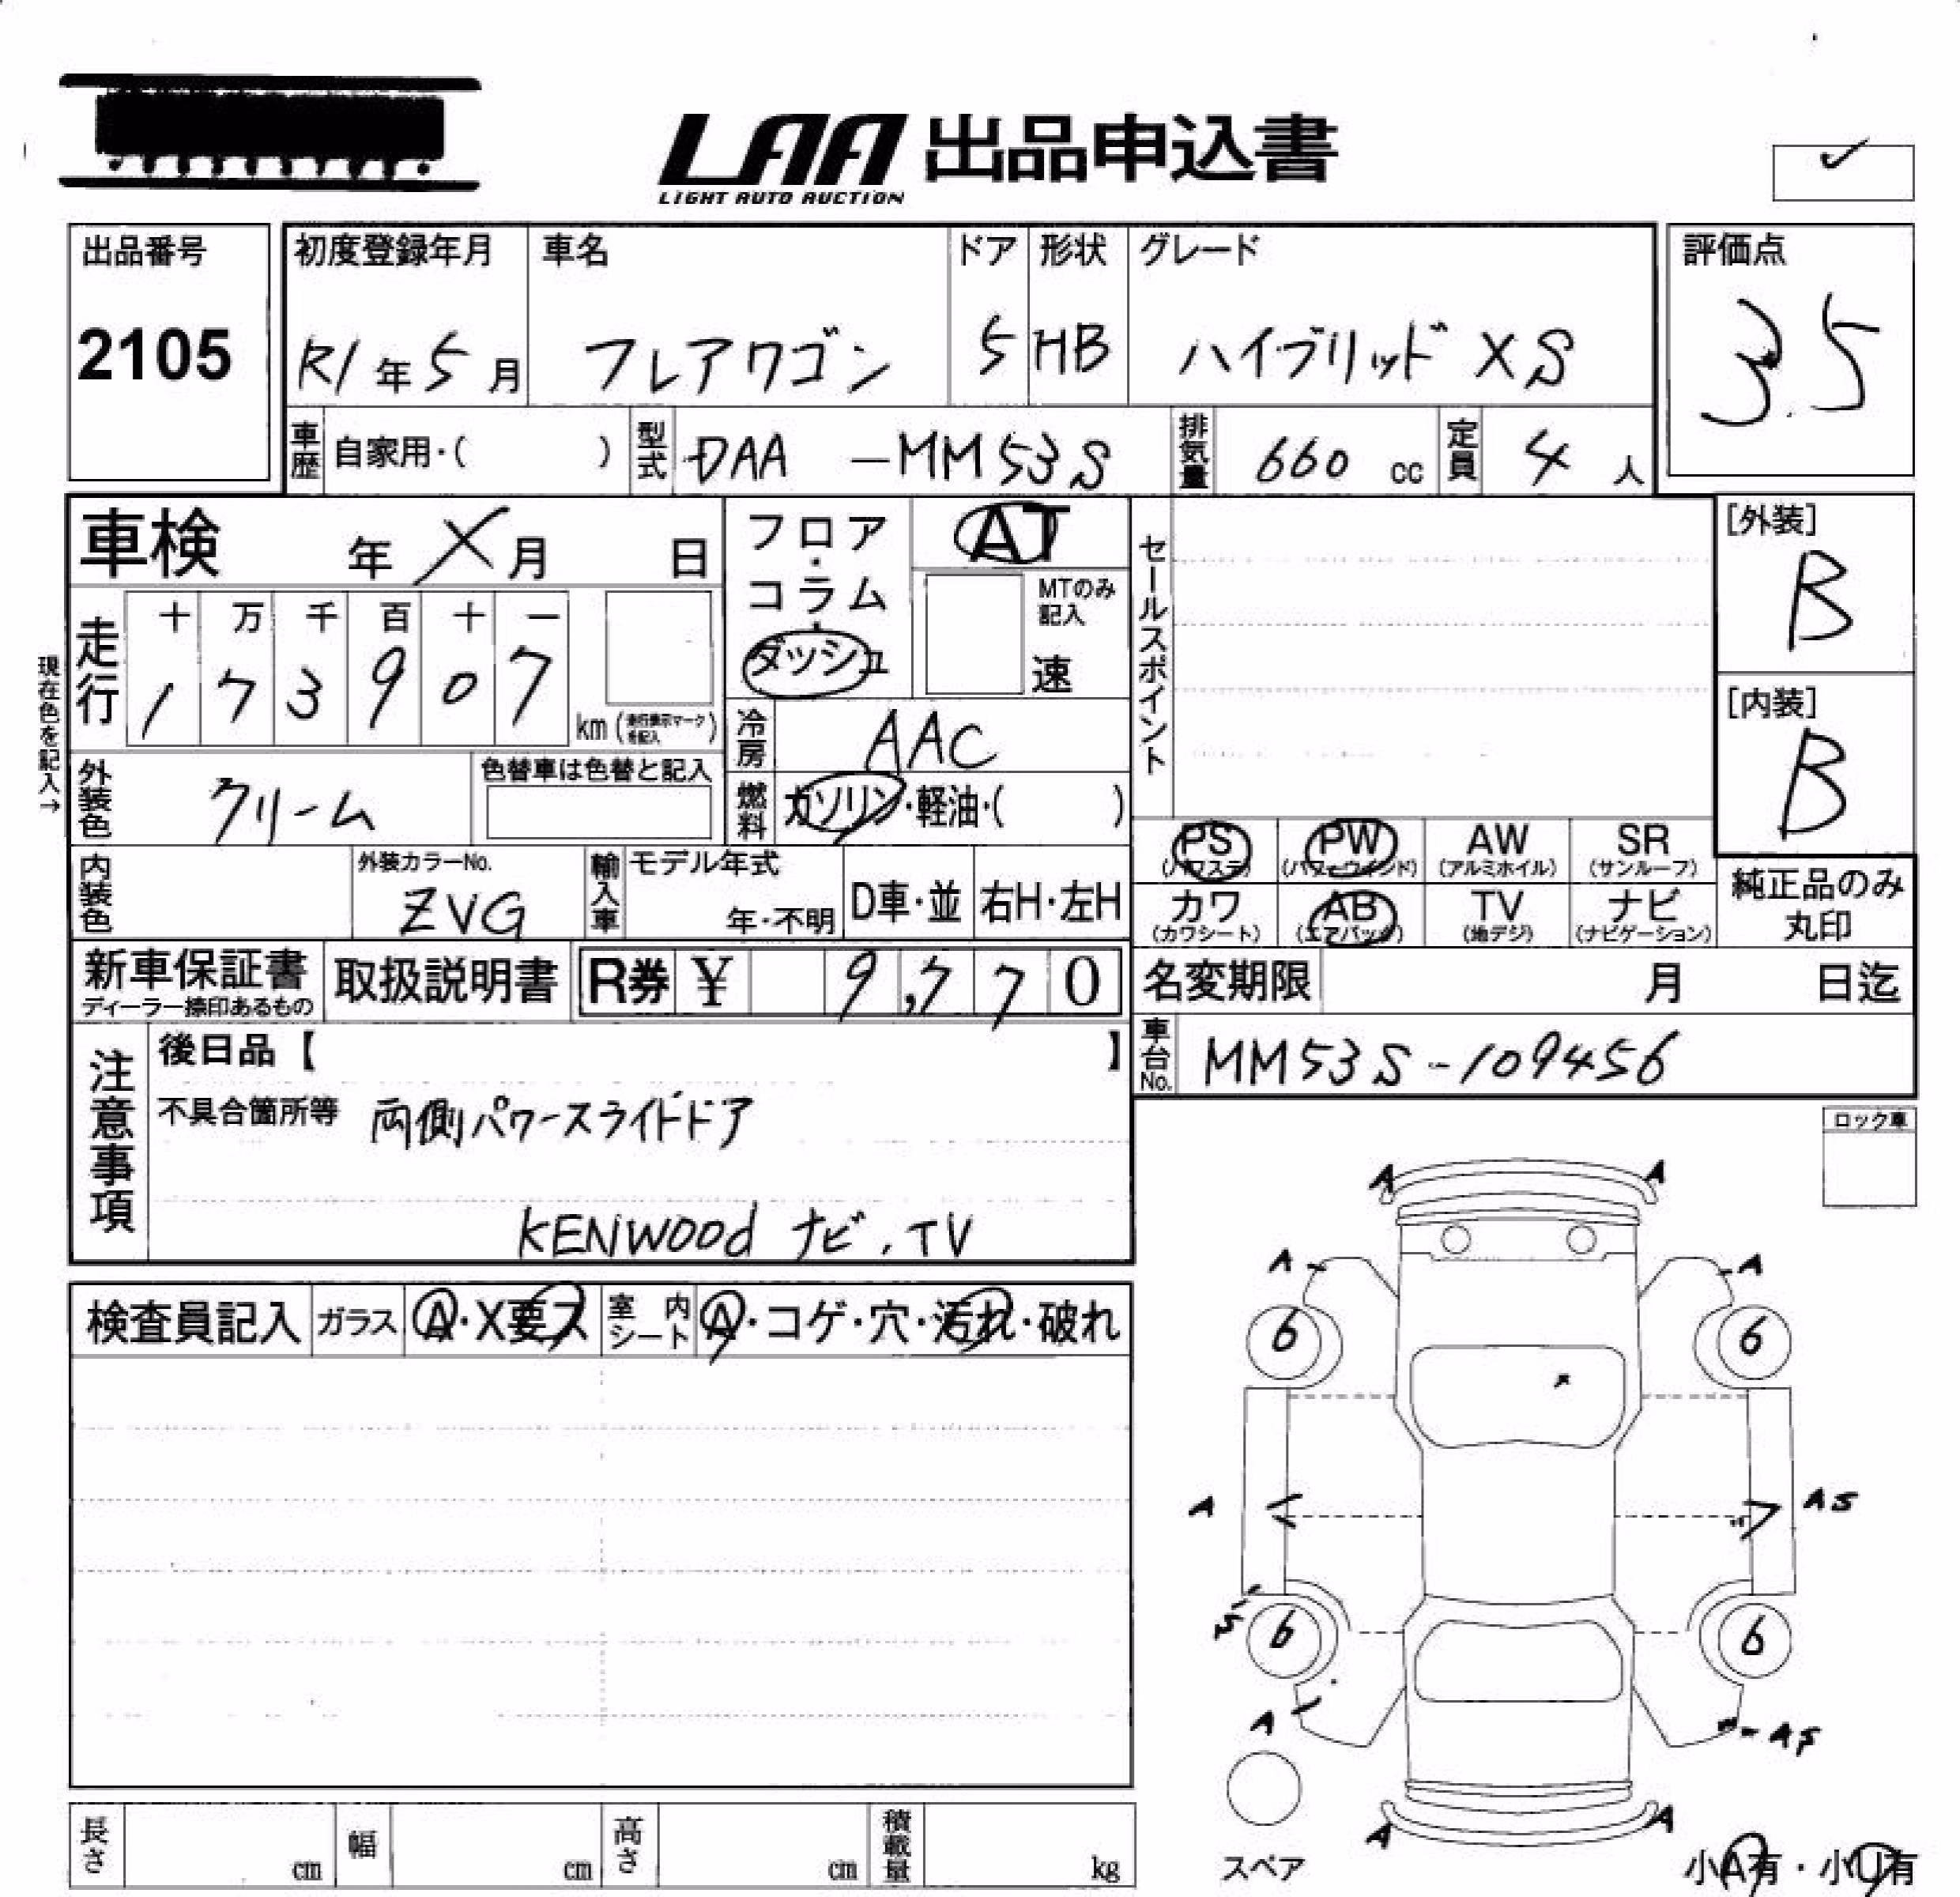 LAA 出品申込書
LIGHT AUTO AUCTION
出品番号 初度登録年月 車名 ドア 形状 グレード 評価点
2105 R1年5月 フレアワゴン 5 HB ハイブリッド XS 3.5
車歴 自家用・( ) 型式 DAA -MM53S 排気量 660 cc 定員 4 人
車検 年 X 月 日 フロア・コラム・ダッシュ AT セールスポイント [外装]
B
MTのみ記入
速
現在色を記入→
走行 十 万 千 百 十 一
1 7 3 9 0 7 km (走行表示マークを記入)
[内装]
B
冷房 AAC
外装色 クリーム 色替車は色替と記入 燃料 ガソリン・軽油・( )
PS AB PW AW SR
(パワステ) (パワーウインド) (アルミホイル) (サンルーフ)
内装色 外装カラーNo. ZVG 輸入車 モデル年式 年・不明 D車・並 右H・左H
カワ AB TV ナビ 純正品のみ丸印
(カワシート) (エアバッグ) (地デジ) (ナビゲーション)
新車保証書 取扱説明書 R券 ¥ 9,770 名変期限 月 日迄
ディーラー捺印あるもの
車台No. MM53S-109456
注意事項 後日品【 】
不具合箇所等 両側パワースライドドア
KENWOOD ナビ.TV
ロック車
検査員記入 ガラス A・X要ス 室内シート A・コゲ・穴・汚れ・破れ
A A
A A
6 6
A AS
S 6 6
A AS
A A
スペア
小A有・小U有
長さ cm 幅 cm 高さ cm 積載量 kg